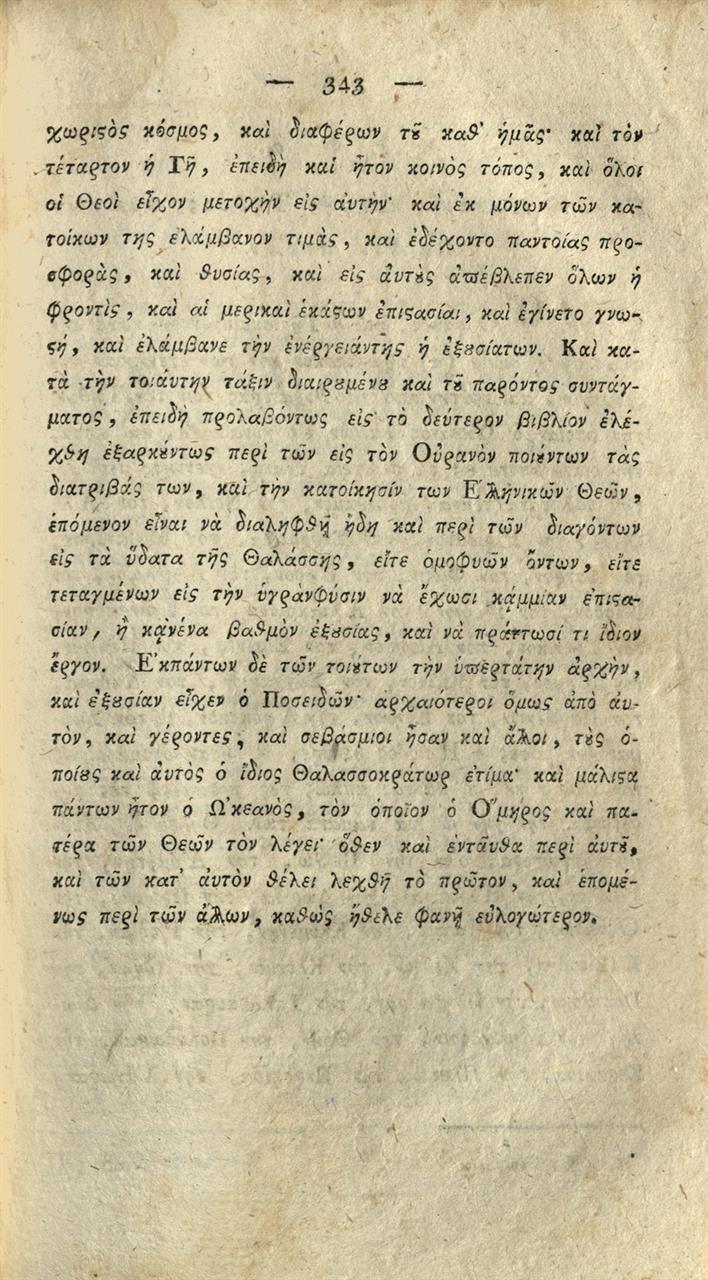 — 343 —
χωριϛὸς κόσμος, καὶ διαφέρων τȣ͂ καθ' ἡμᾶς· καὶ τὸν
τέταρτον ἡ Γῆ, ἐπειδὴ καὶ ἦτον κοινὸς τόπος, καὶ ὅλοι
οἱ Θεοὶ εἶχον μετοχὴν εἰς ἀυτὴν· καὶ ἐκ μόνων τῶν κα-
τοίκων της ἐλάμβανον τιμὰς, καὶ ἐδέχοντο παντοίας προ-
σφορὰς, καὶ θυσίας, καὶ εἰς ἀυτȣ̀ς ἀπέβλεπεν ὅλων ἡ
φροντὶς, καὶ αἱ μερικαὶ ἑκάϛων ἐπιϛασίαι, καὶ ἐγίνετο γνω-
ϛή, καὶ ἐλάμβανε τὴν ἐνέργειάντης ἡ ἐξȣσίατων. Καὶ κα-
τὰ τὴν τοιάυτην τάξιν διαιρȣμένȣ καὶ τȣ͂ παρόντος συντάγ-
ματος, ἐπειδὴ προλαβόντως εἰς τὸ δεύτερον βιβλίον ἐλέ-
χθη ἐξαρκȣ́ντως περὶ τῶν εἰς τὸν Οὐρανὸν ποιȣ́ντων τὰς
διατριβάς των, καὶ τὴν κατοίκησίν των Ἑλληνικῶν Θεῶν,
ἑπόμενον εἶναι νὰ διαληφθῇ ἤδη καὶ περὶ τῶν διαγόντων
εἰς τὰ ὕδατα τῆς Θαλάσσης, εἴτε ὁμοφυῶν ὄντων, εἴτε
τεταγμένων εἰς τὴν ὑγρὰνφύσιν νὰ ἔχωσι κάμμίαν ἐπιϛα-
σίαν, ἢ κᾀνένα βαθμὸν ἐξȣσίας, καὶ νὰ πράττωσί τι ἴδιον
ἔργον. Ἐκπάντων δὲ τῶν τοιȣ́των τὴν ὑπερτάτην ἀρχὴν,
καὶ ἐξȣσίαν εἶχεν ὁ Ποσειδῶν· ἀρχαιότεροι ὅμως ἀπὸ ἀυ-
τὸν, καὶ γέροντες, καὶ σεβάσμιοι ἦσαν καὶ ἄλλοι, τȣ̀ς ὁ-
ποίȣς καὶ ἀυτὸς ὁ ἴδιος Θαλασσοκράτωρ ἐτίμα· καὶ μάλιϛα
πάντων ἦτον ὁ Ὠκεανὸς, τὸν ὁποῖον ὁ Ὅμηρος καὶ πα-
τέρα τῶν Θεῶν τὸν λέγει· ὅθεν καὶ ἐντᾶυθα περὶ ἀυτȣ͂,
καὶ τῶν κατ' ἀυτὸν θέλει λεχθῆ τὸ πρῶτον, καὶ ἑπομέ-
νως περὶ τῶν ἄλλων, καθὼς ἤθελε φανῇ εὐλογώτερον.